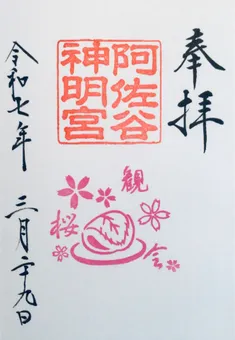 奉拝
阿佐谷
神明宮
観桜会
令和七年 三月二十九日